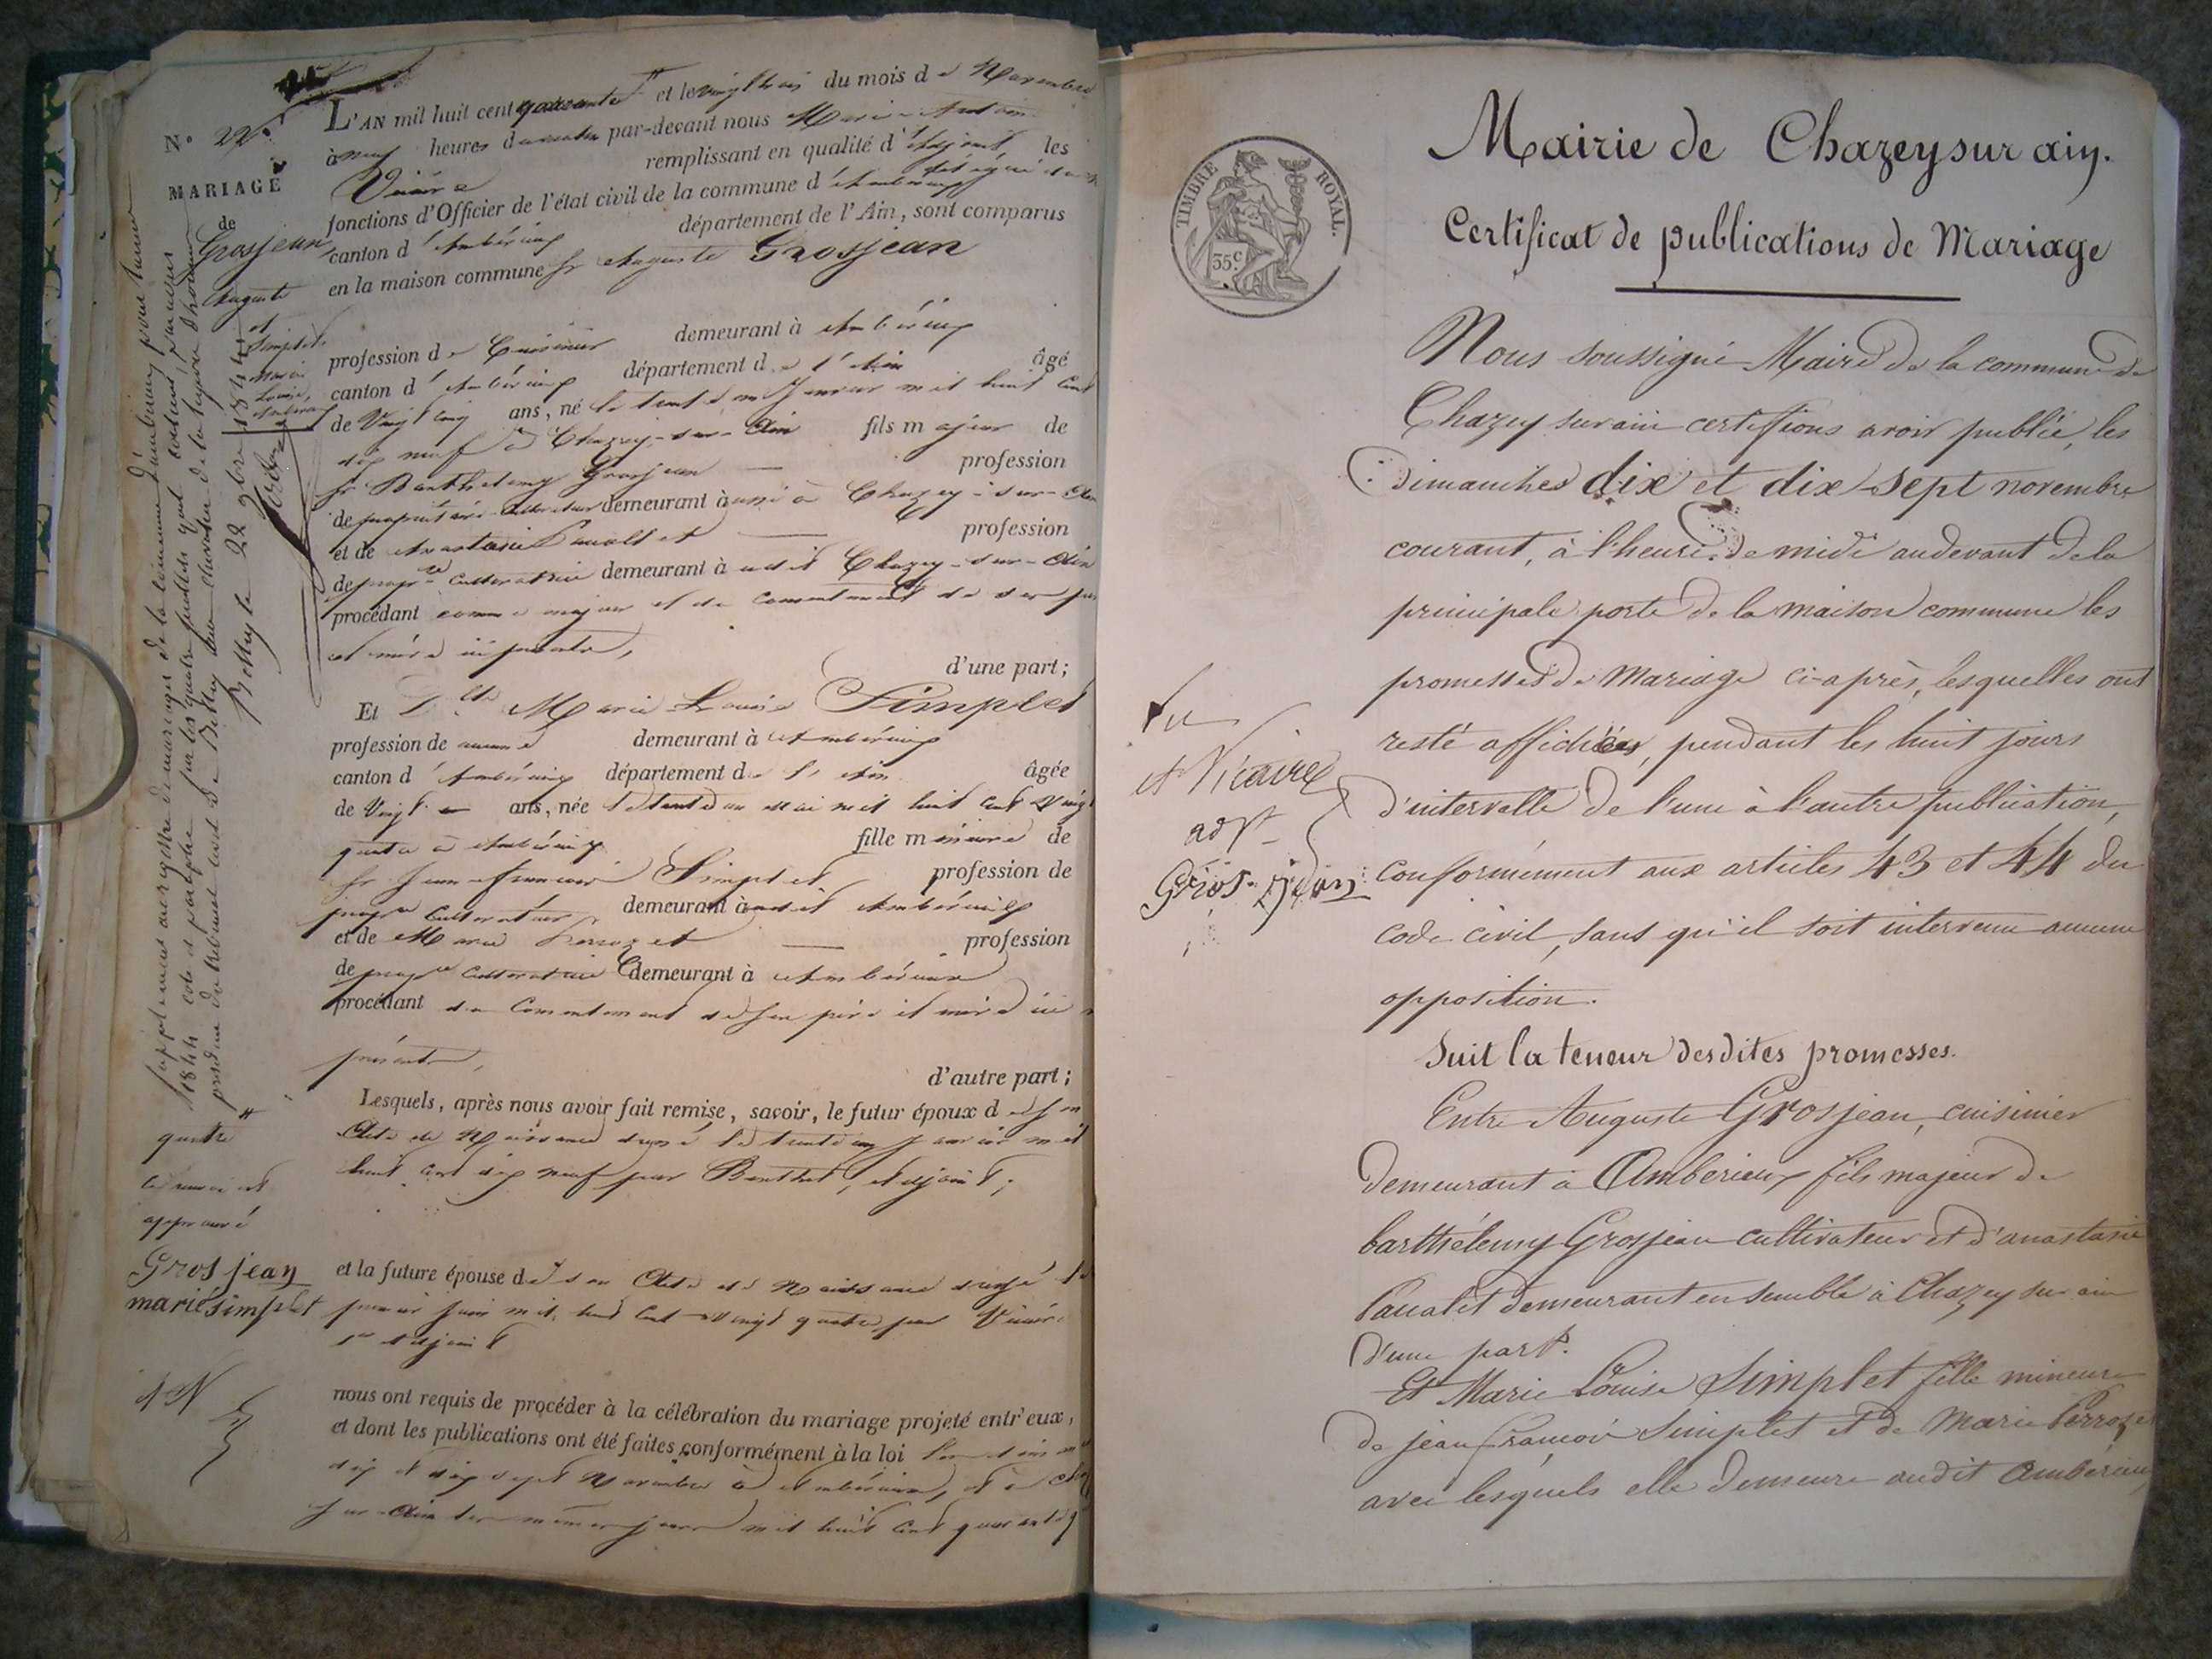 N° 22.
MARIAGE
de
Grosjean
Auguste
et
Simplet
Marie
Louise,
L'AN mil huit cent quarante et le vingt trois du mois de Novembre
à neuf heures du matin par-devant nous Marie Antoine
Vicaire remplissant en qualité d'adjoint les
fonctions d'Officier de l'état civil de la commune d'Ambérieux
canton d'Ambérieux département de l'Ain, sont comparus
en la maison commune Sr Auguste Grosjean
profession de Cuisinier demeurant à Ambérieux
canton d'Ambérieux département de l'Ain âgé
de Vingt cinq ans, né le trente un Janvier mil huit cent
dix neuf à Chazey-sur-Ain fils majeur de
Sr Barthelemy Grosjean profession
de propriétaire cultivateur demeurant à Chazey-sur-Ain
et de Anastasie profession
de cultivatrice demeurant à audit Chazey-sur-Ain
procédant comme majeur et du consentement de ses père
et mère ici présents,
d'une part;
Et Dlle Marie Louise Simplet
profession de aucune demeurant à Ambérieux
canton d'Ambérieux département de l'Ain âgée
de Vingt ans, née le trente un Mai mil huit cent vingt
quatre à Ambérieux fille mineure de
Sr Jean François Simplet profession de
propre cultivateur demeurant à audit Ambérieux
et de Marie Perrozet profession
de propre cultivatrice demeurant à Ambérieux
procédant du consentement de ses père et mère ici
présents,
d'autre part;
Lesquels, après nous avoir fait remise, savoir, le futur époux de son
Acte de Naissance dressé le trente un janvier mil
huit cent dix neuf par Berthet, adjoint;
et la future épouse de son Acte de Naissance dressé le
premier juin mil huit cent vingt quatre par Vicaire
adjoint
nous ont requis de procéder à la célébration du mariage projeté entr'eux,
et dont les publications ont été faites conformément à la loi
dix et dix sept Novembre à Ambérieux, et à
sur-Ain les mêmes jours mil huit cent quarante
quatre
le renvoi est
approuvé
Grosjean
marie simplet
AV
Supplément au registre de mariages de la commune d'Ambérieux pour l'année
1844 coté et paraphé sur les quatre feuillets qu'il contient par nous
président du tribunal civil de Belley, chevalier de la légion d'honneur
Belley le 22 9bre 1844
TIMBRE ROYAL.
35c
Mairie de Chazey sur ain.
Certificat de publications de Mariage
Nous soussigné Maire de la commune de
Chazey sur ain certifions avoir publié, les
Dimanches dix et dix-sept novembre
courant, à l'heure de midi au devant de la
principale porte de la maison commune les
promesses de Mariage ci-après, lesquelles ont
resté affichées, pendant les huit jours
d'intervalle de l'une à l'autre publication,
conformément aux articles 43 et 44 du
code civil, sans qu'il soit intervenu aucune
opposition.
Suit la teneur desdites promesses.
Entre Auguste Grosjean, cuisinier
demeurant à Amberieux fils majeur de
barthélemy Grosjean cultivateur et d'anastasie
demeurant ensemble à Chazey sur ain
D'une part.
Et Marie Louise Simplet fille mineure
de jean françois Simplet et de Marie Perrozet
avec lesquels elle demeure audit Amberieux
Vu
A Vicaire
adjt
Gros-jean